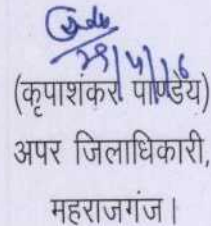 29/5/16
(कृपाशंकर पाण्डेय)
अपर जिलाधिकारी,
महराजगंज।